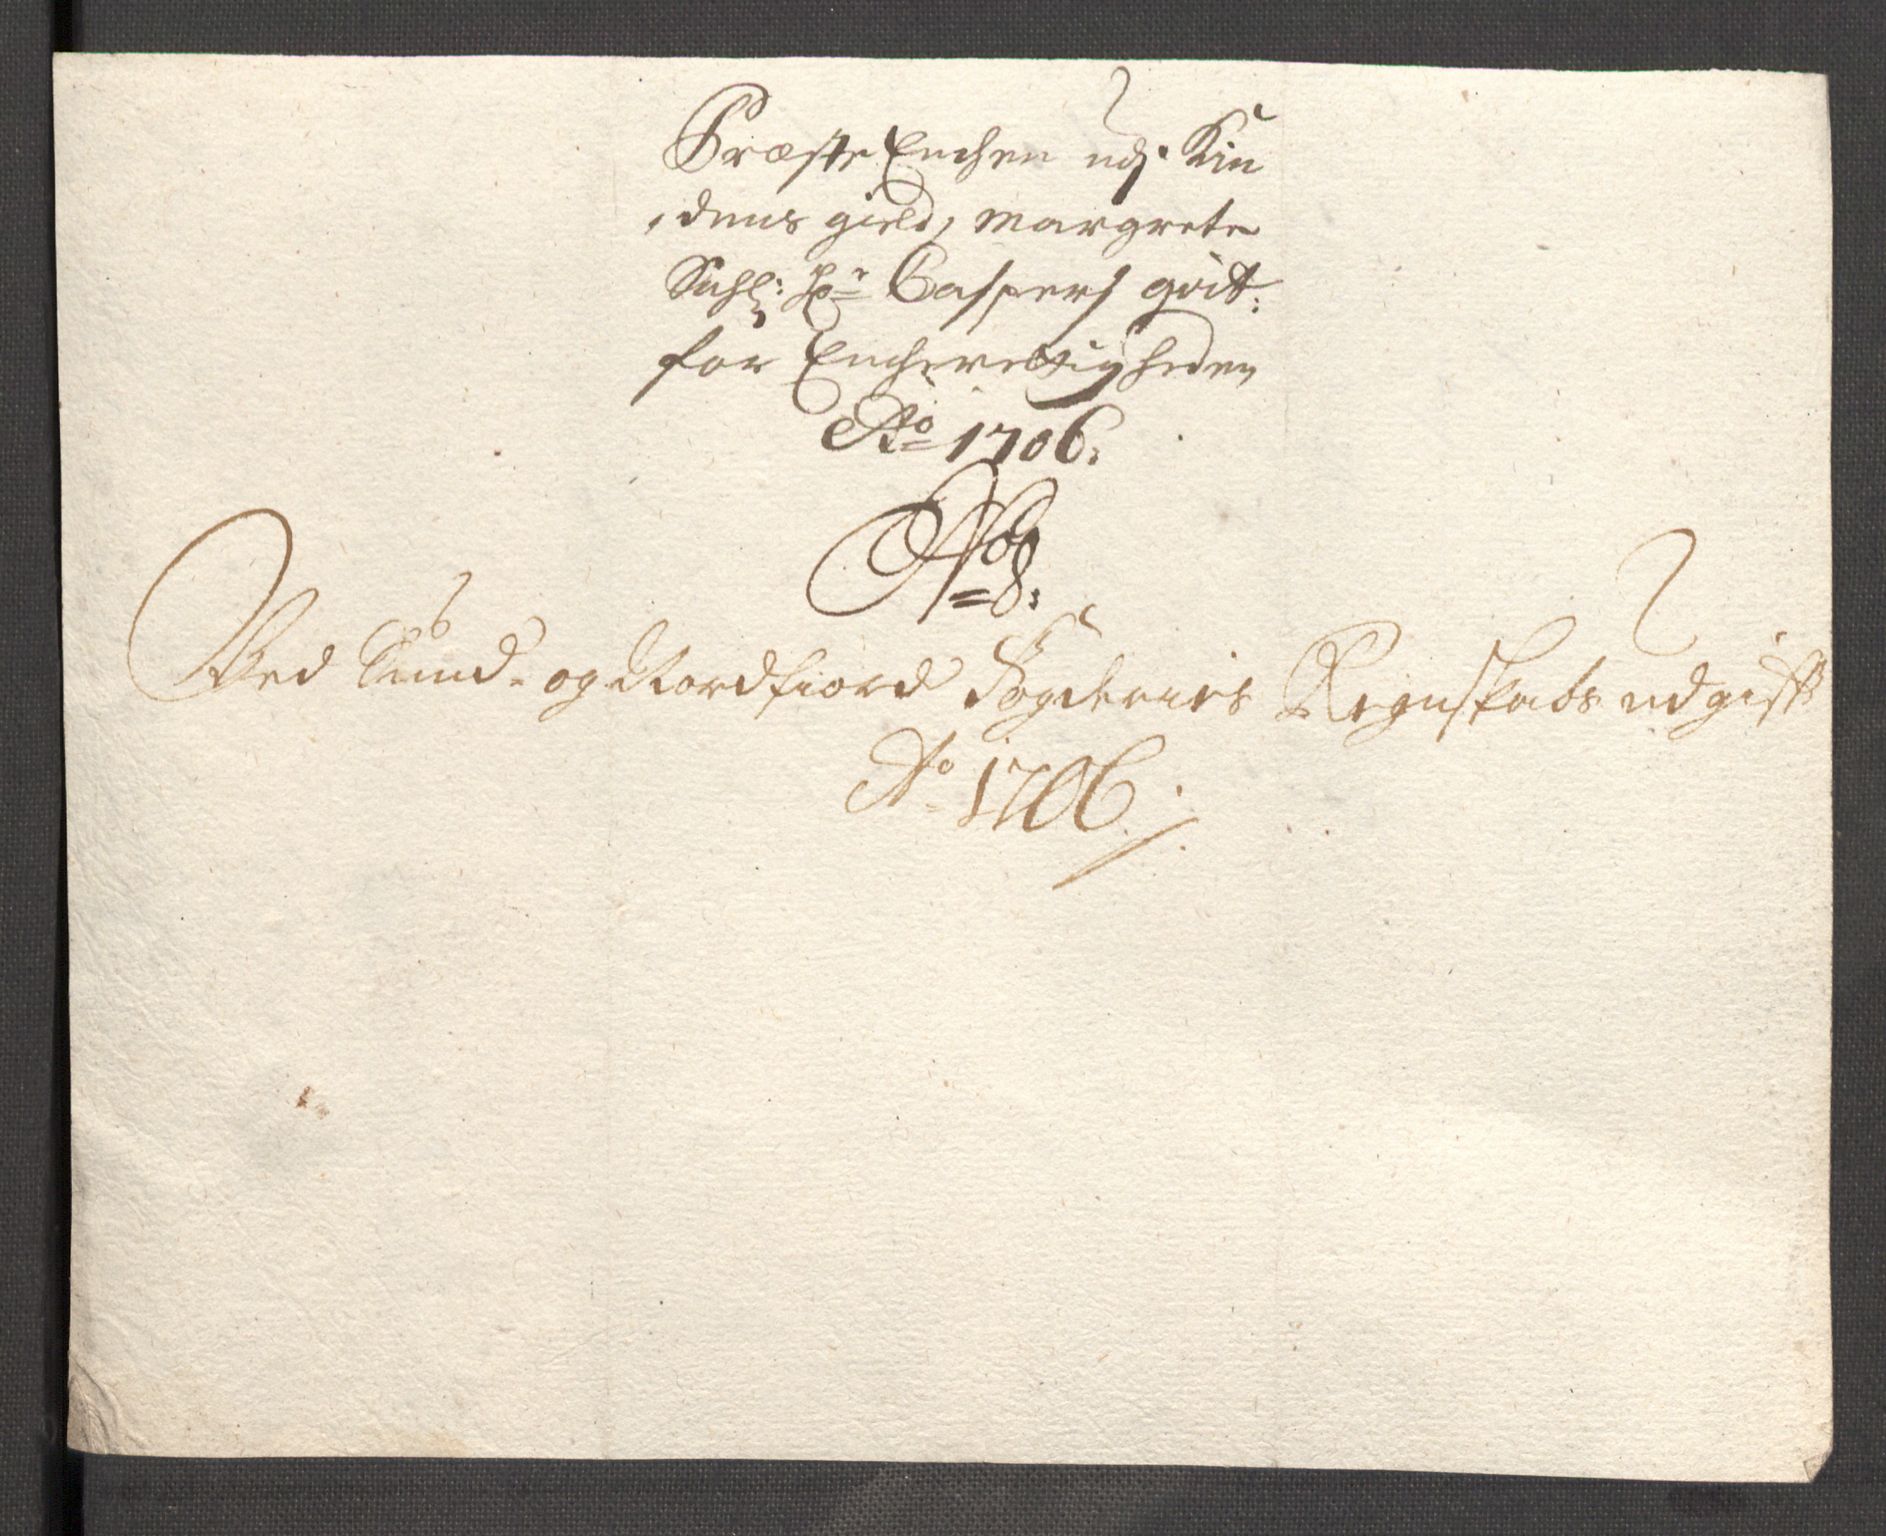 Præste Enchen udj Kin
dens gield, Margrete
Sahl: Hr Caspers qvit:
for Encherettigheden
Ao 1706.
No 8:
Ved Sund- og Nordfiord Fogderies Regnskabs udgift
Ao 1706.